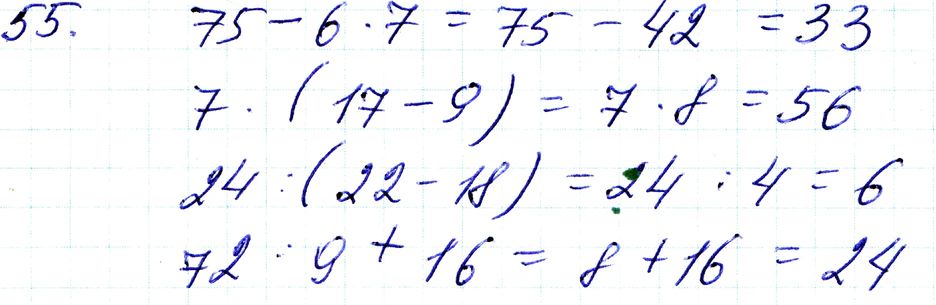 55. 75 - 6 · 7 = 75 - 42 = 33
7 · (17 - 9) = 7 · 8 = 56
24 : (22 - 18) = 24 : 4 = 6
72 : 9 + 16 = 8 + 16 = 24